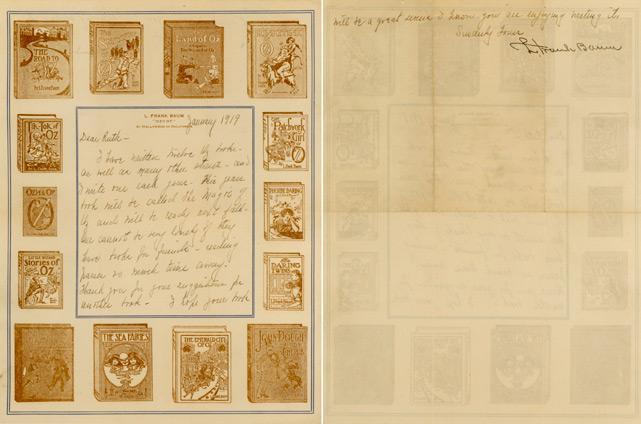 THE
ROAD TO
OZ
Land of Oz
L. FRANK BAUM
"OZCOT"
AT HOLLYWOOD IN CALIFORNIA
January 1919
Dear Ruth -
I have written twelve Oz books -
as well as many other stories - and
I write one each year. This year's
book will be called the Magic of
Oz and will be ready next fall.
One cannot be very lonely if they
have books for friends - writing
passes so much time away.
Thank you for your suggestion for
another book - I hope your book
Tik-Tok of
OZ
Patchwork
Girl
of OZ
OZMA of
OZ
PHOEBE DARING
LITTLE WIZARD
Stories of
OZ
DARING
TWINS
THE SEA FAIRIES
THE EMERALD CITY
OF OZ
JOHN DOUGH
AND THE
CHERUB
will be a great success I know you are enjoying writing it.
Sincerely Yours
L. Frank Baum